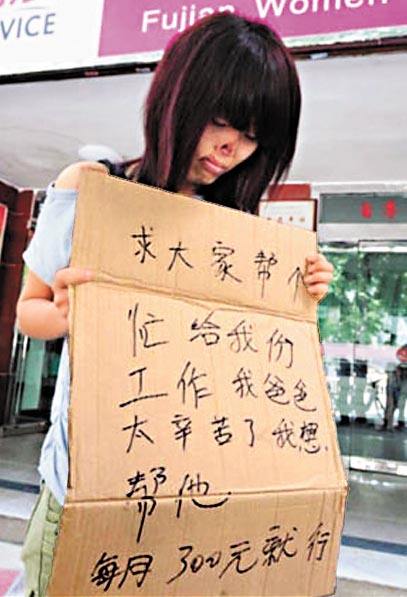 VICE
Fujian Women
求大家帮个
忙给我份
工作我爸爸
太辛苦了我想
帮他
每月300元就行